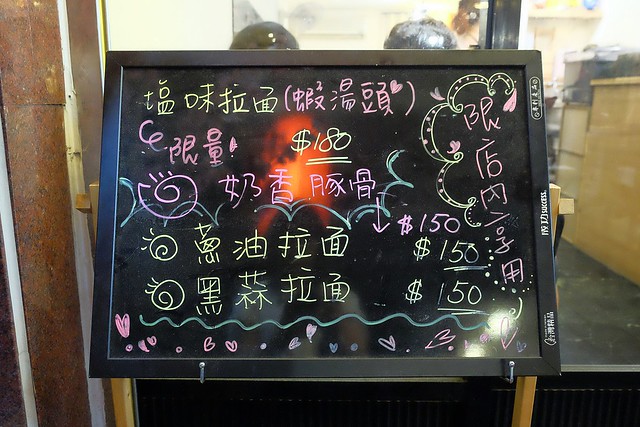 塩味拉面(蝦湯頭)
限量!
$180
奶香豚骨
$150
蔥油拉面 $150
黑蒜拉面 $150
限店內享用
成功 success.
台灣精品